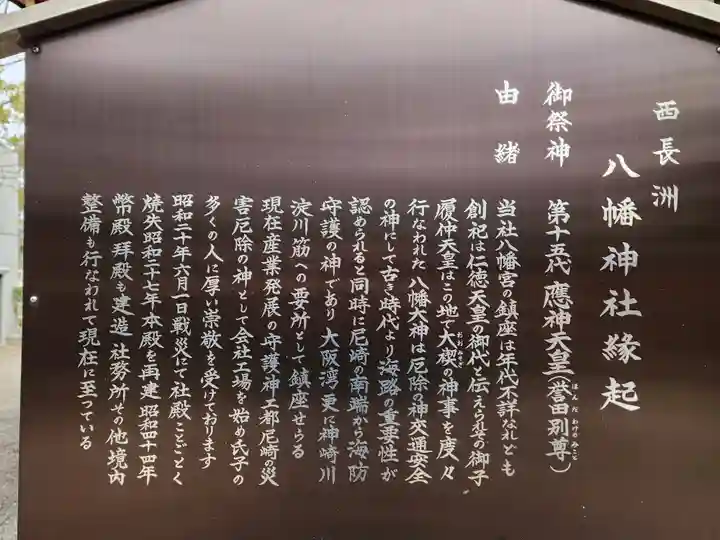 西長洲
八幡神社縁起
御祭神 第十五代 應神天皇(誉田別尊)
ほんだわけのみこと
由緒
当社八幡宮の鎮座は年代不詳なれども
創祀は仁徳天皇の御代と伝えられ其の御子
履仲天皇はこの地で大禊への神事を度々
おおみそぎ
行なわれた八幡大神は厄除の神交通安全
の神として古き時代より海路の重要性が
認められると同時に尼崎の南端から海防
守護の神であり 大阪湾更に神崎川
淀川筋への要所として鎮座せらる
現在産業発展の守護神工都尼崎の災
害厄除の神として会社工場を始め氏子の
多くの人に厚い崇敬を受けております
昭和二十年六月一日戦災にて社殿ことごとく
焼失昭和二十七年本殿を再建 昭和四十四年
幣殿拝殿も建造 社務所その他境内
整備も行なわれて現在に至っている